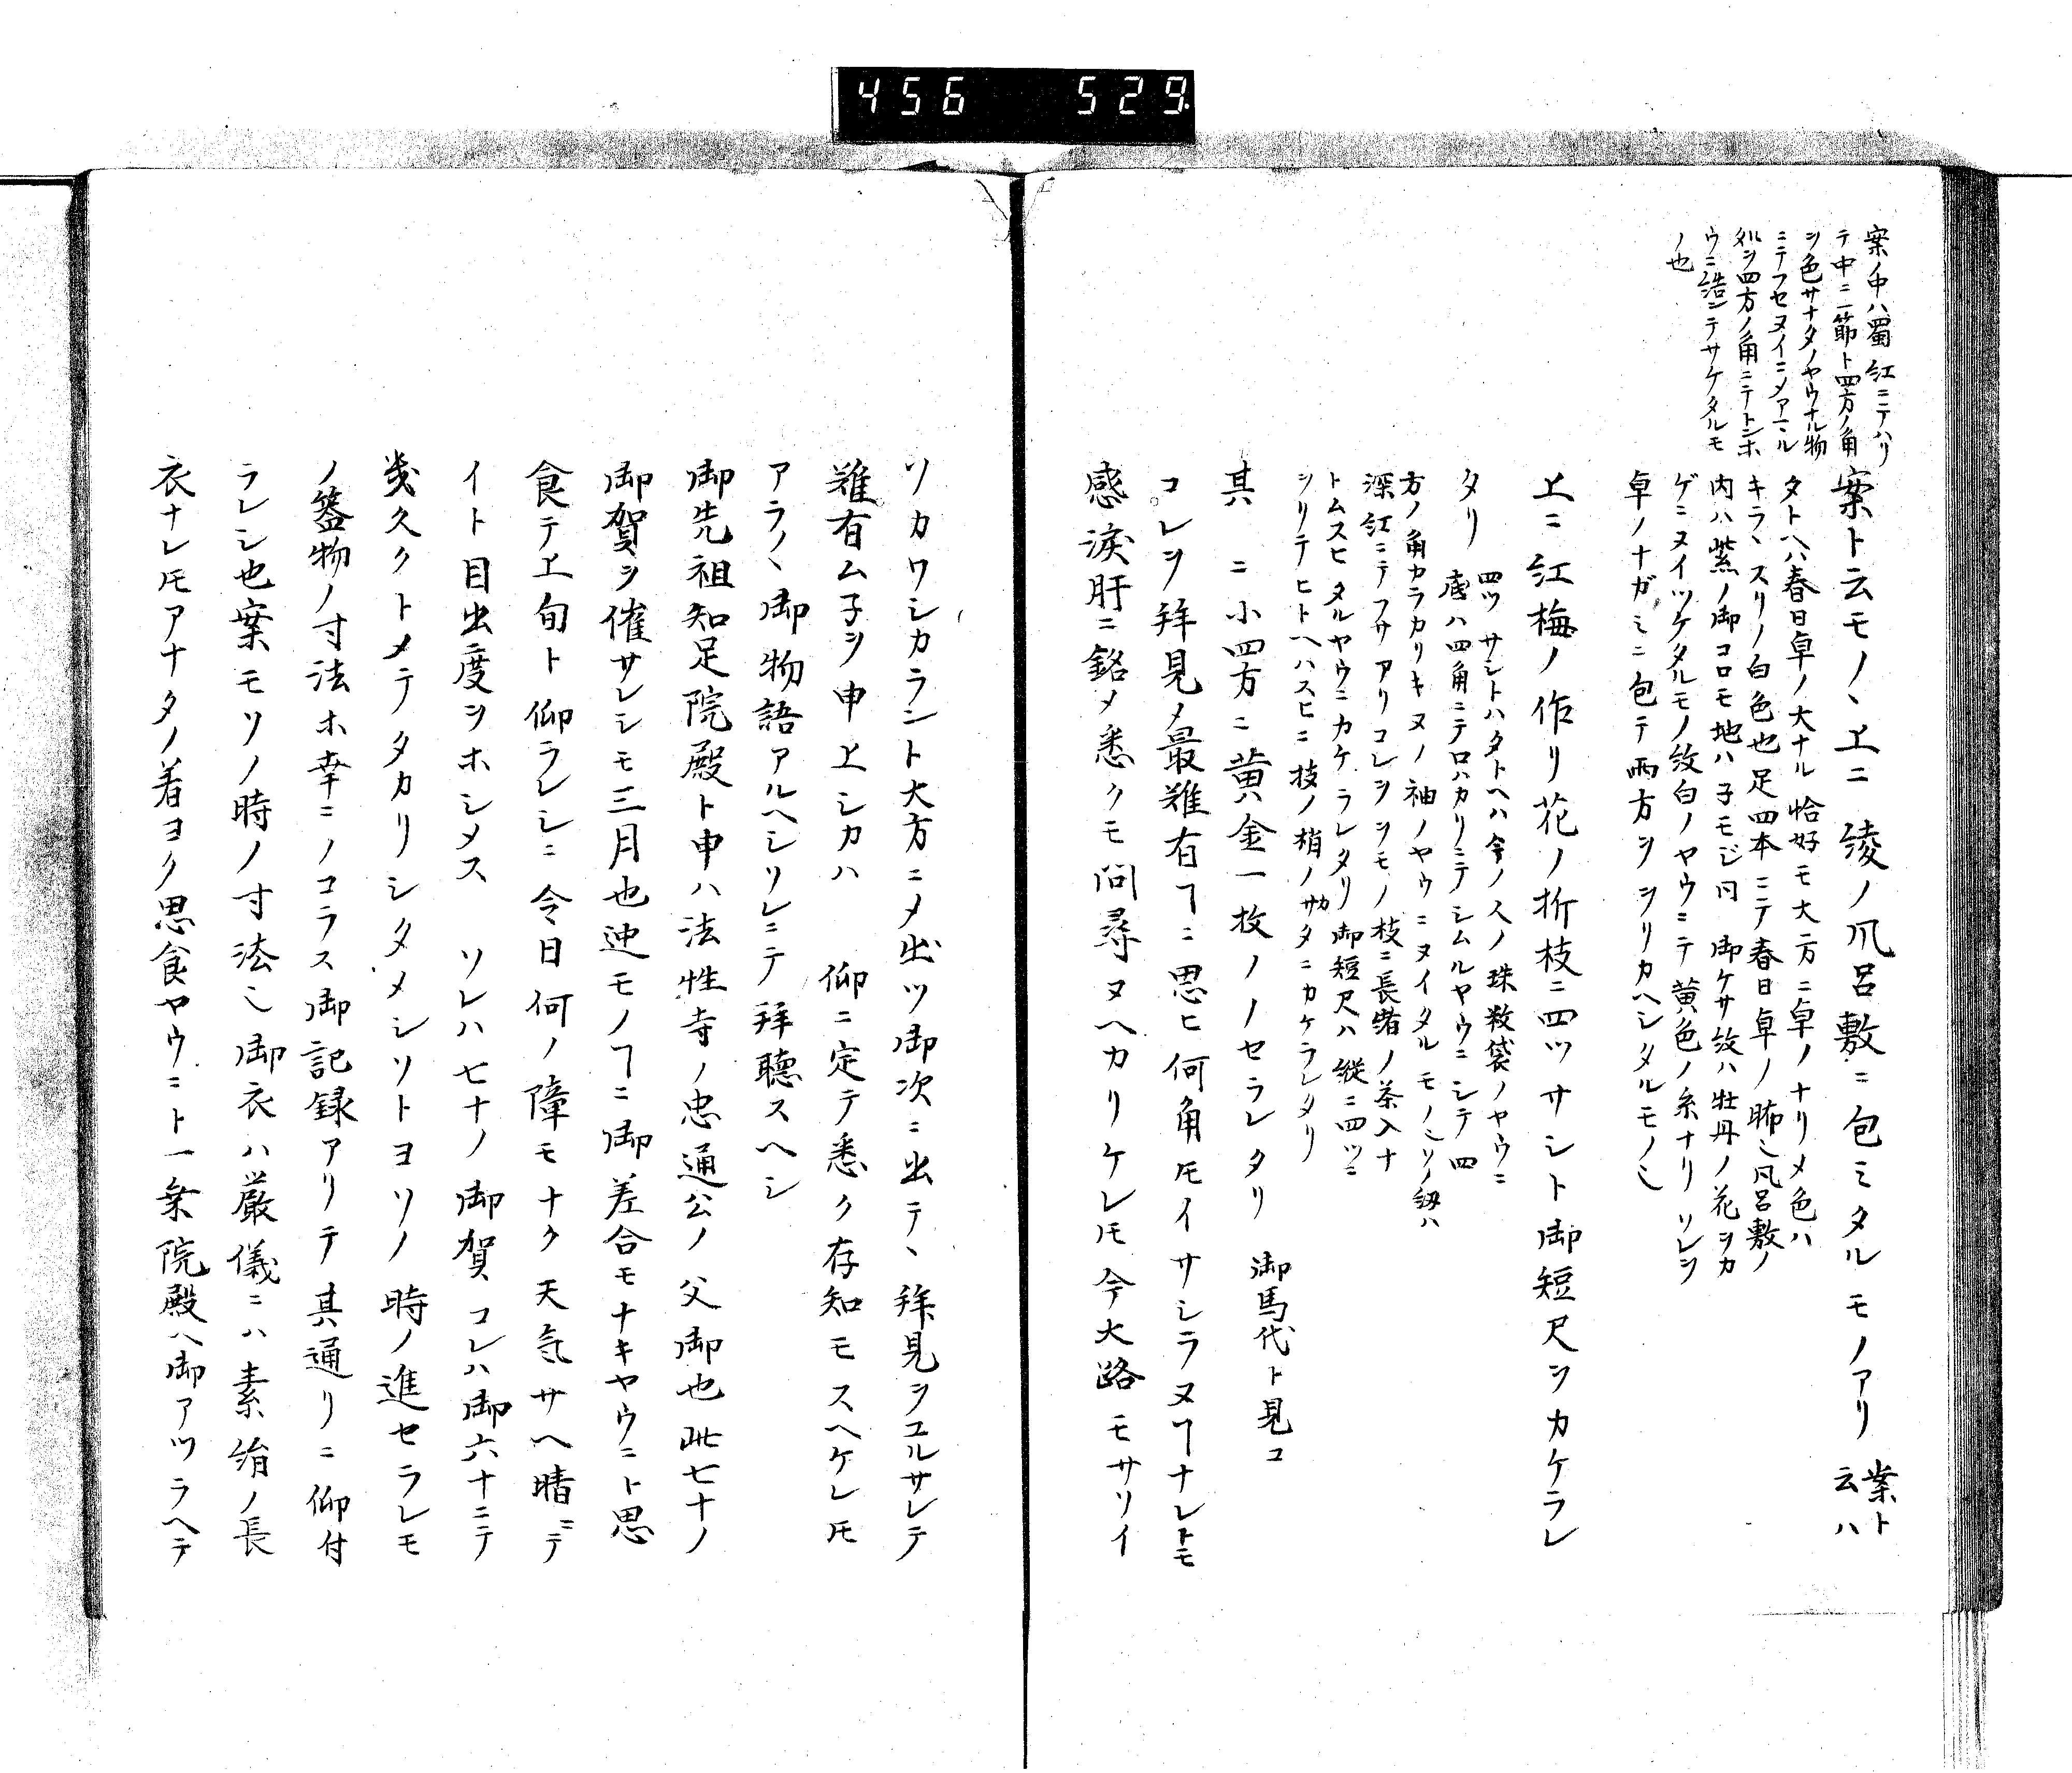 456 529.
案ノ中ハ蜀紅ニテハリ
テ中ニ一節ト四方ノ角
ヲ色サナタノヤウナル物
ニテフセヌイニメアマル
処ヲ四方ノ角ニテトンホ
ウニ結ンテサケタルモ
ノ也
案ト云モノヽ上ニ綾ノ風呂敷ニ包ミタルモノアリ 案ト云ハ
タトヘハ春日卓ノ大ナル恰好モ大方ニ卓ノナリメ色ハ
キラヽスリノ白色也足四本ニテ春日卓ノ腨也風呂敷ノ
内ハ紫ノ御コロモ地ハ子モジ同御ケサ紋ハ牡丹ノ花ヲカ
ゲニヌイツケタルモノ紋白ノヤウニテ黄色ノ糸ナリソレヲ
卓ノナガミニ包テ両方ヲヲリカヘシタルモノ也
上ニ紅梅ノ作リ花ノ折枝ニ四ツサシト御短尺ヲカケラレ
タリ 四ツサシトハタトヘハ今ノ人ノ珠数袋ノヤウニ
底ハ四角ニテ口ハカリニテシムルヤウニシテ四
方ノ角カラカリキヌノ袖ノヤウニヌイタルモノ也ソノ紐ハ
深紅ニテフサアリコレヲシモノ枝ニ長緒ノ茶入ナ
トムスヒタルヤウニカケラレタリ御短尺ハ縦ニ四ツニ
ヲリテヒトヘハスヒニ枝ノ梢ノカタニカケラレタリ
其ハニ小四方ニ黄金一枚ノノセラレタリ 御馬代ト見コ
コレヲ拝見メ最難有ヿニ思ヒ何角モイサシラヌヿナレトモ
感涙肝ニ銘メ悉クモ問尋ヌヘカリケレモ今大路モサソイ
ソカワシカラント大方ニメ出ツ御次ニ出テヽ拝見ヲユルサレテ
難有ム子ヲ申上シカハ 仰ニ定テ悉ク存知モスヘケレモ
アラ〳〵御物語アルヘシソレニテ拝聴スヘシ
御先祖知足院殿ト申ハ法性寺ノ忠通公ノ父御也此七十ノ
御賀ヲ催サレシモ三月也迚モノヿニ御差合モナキヤウニト思
食テ上旬ト仰ラレシニ今日何ノ障モナク天気サヘ晴ニテ
イト目出度ヲホシメス ソレハ七十ノ御賀コレハ御六十ニテ
幾久クトメテタカリシタメシソトヨソノ時ノ進セラレモ
ノ盛物ノ寸法ホ幸ニノコラス御記録アリテ其通リニ仰付
ラレシ也案モソノ時ノ寸法也御衣ハ厳儀ニハ素絹ノ長
衣ナレモアナタノ着ヨク思食ヤウニト一乗院殿ヘ御アツラヘテ